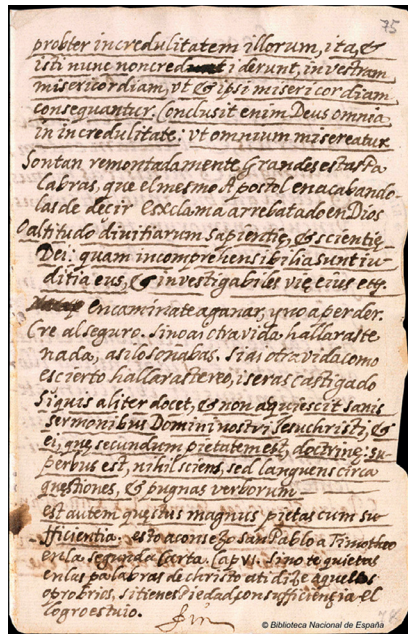 75
probter incredulitatem illorum, ita, &
isti nunc non crediderunt, in vestram
misericordiam, vt & ipsi misericordiam
consequantur. Conclusit enim Deus omnia
in incredulitate: vt omnium misereatur
Son tan remontadamente Grandes estas Pa
labras, que el mesmo Apostol en acabando-
las de decir Esxclama arrebatado en Dios
O altitudo diuitiarum Sapientie, & scientie
Dei: quam incomprehensibilia sunt iu-
ditia eus, & investigabiles vie eius etc.
encaminate a ganar, y no a perder.
Cre al seguro. Si no ai otra vida. hallaraste
nada, asi lo sonabas. Si ai otra vida como
es cierto hallaraste reo, i seras castigado
Si quis aliter docet, & non aquiescit sanis
sermonibus Domini nostri Iesuchristi, &
ei, que secundum pietatem est, doctrine: su-
perbus est, nihil sciens, sed languens circa
questiones, & pugnas verborum
est autem questus magnus pietas cum su
fficientia. esto aconsejo San Pablo a Timotheo
en la segunda Carta. Cap VI. Si no te quietas
en las palabras de christo a ti dize aquellos
oprobrios, si tienes Piedad, con sufficenzia el
logro es tuio.
Fin
© Biblioteca Nacional de España